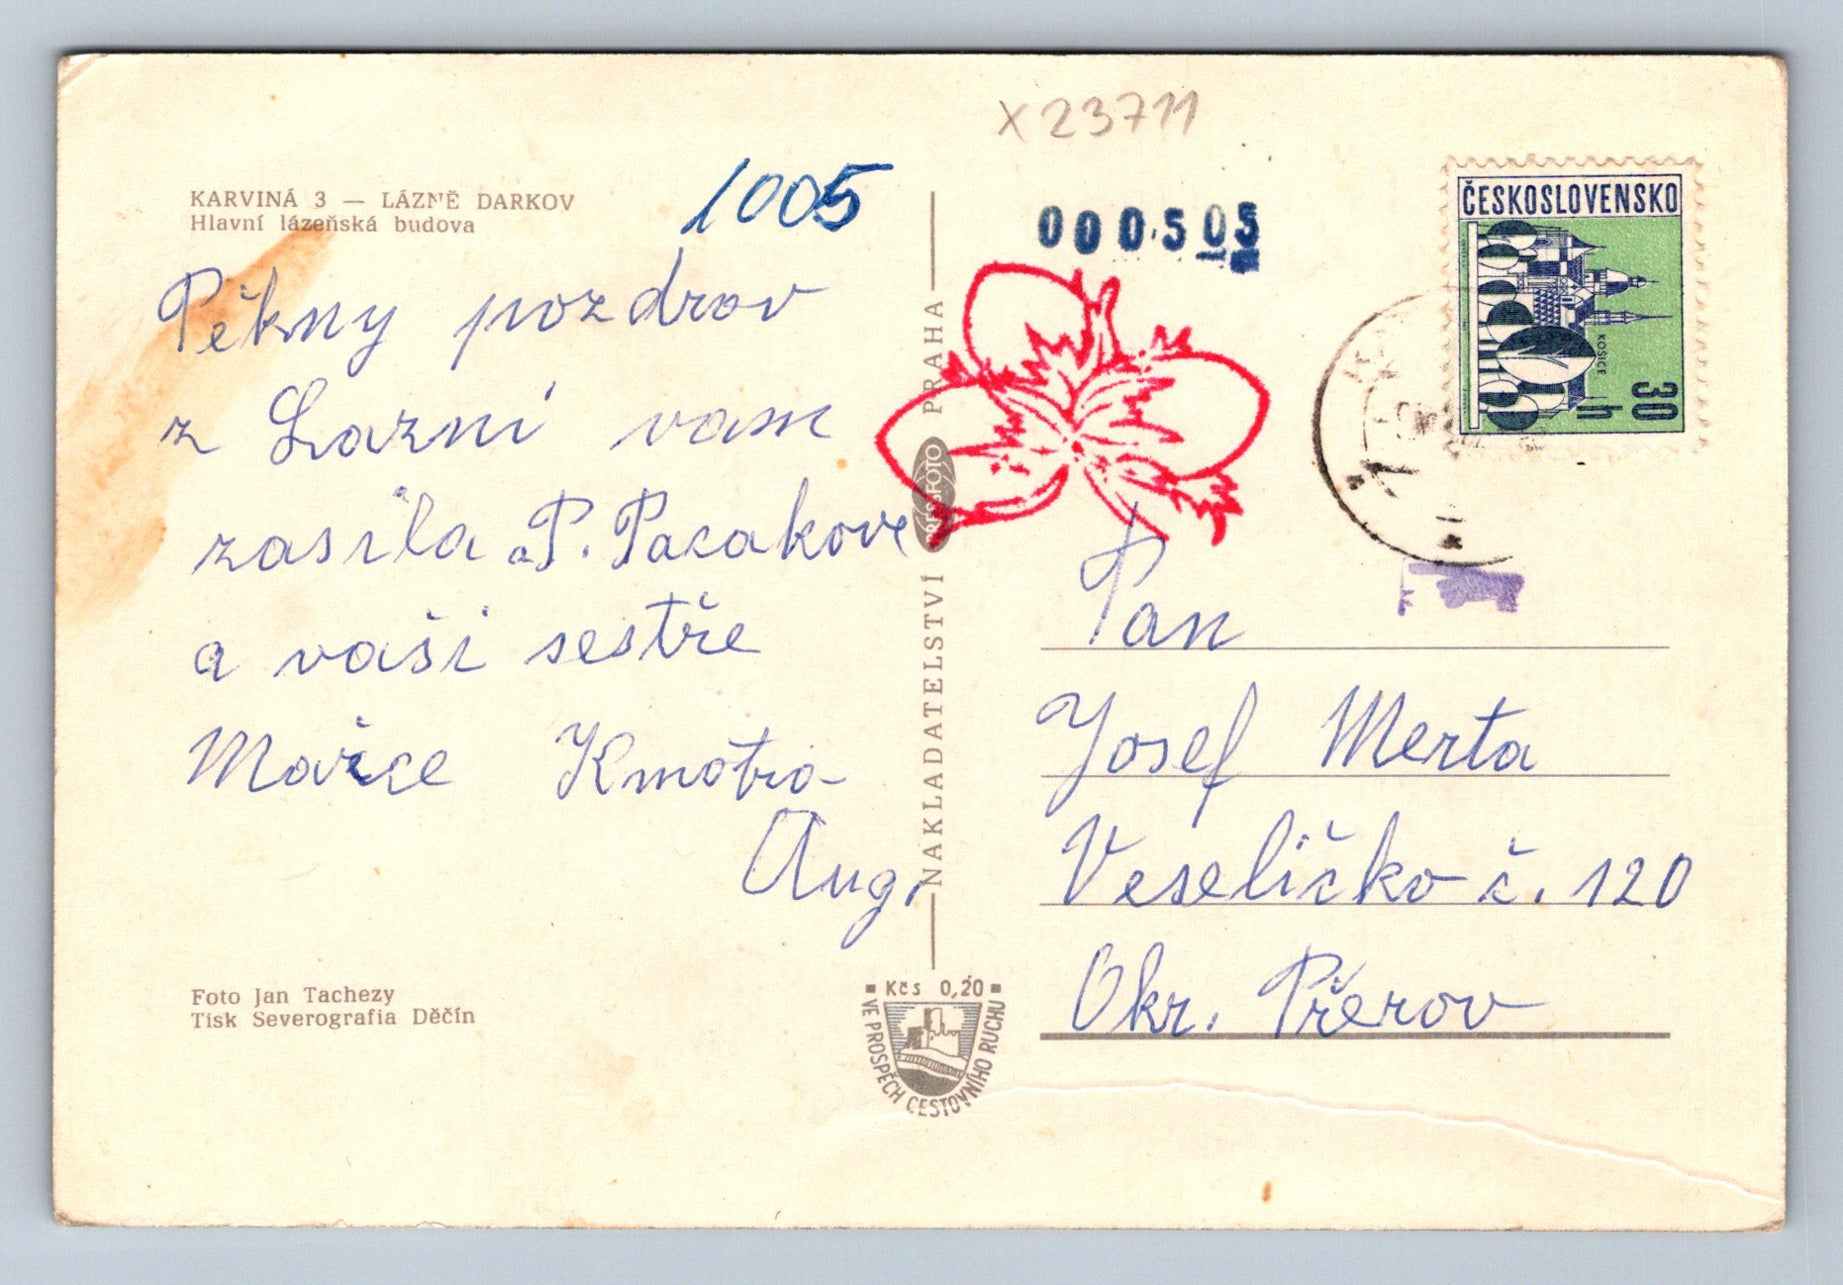 X 23711
1005
000505
KARVINÁ 3 — LÁZNĚ DARKOV
Hlavní lázeňská budova
Pěkny pozdrav
z Lazní vam
zasila a P. Pacakove
a vaši sestře
Mařce Kmotra
Aug.
Foto Jan Tachezy
Tisk Severografia Děčín
NAKLADATELSTVÍ PRESSFOTO PRAHA
Kčs 0,20
VE PROSPĚCH CESTOVNÍHO RUCHU
ČESKOSLOVENSKO
KOŠICE
30 h
Pan
Josef Merta
Veseličko č. 120
Okr. Přerov